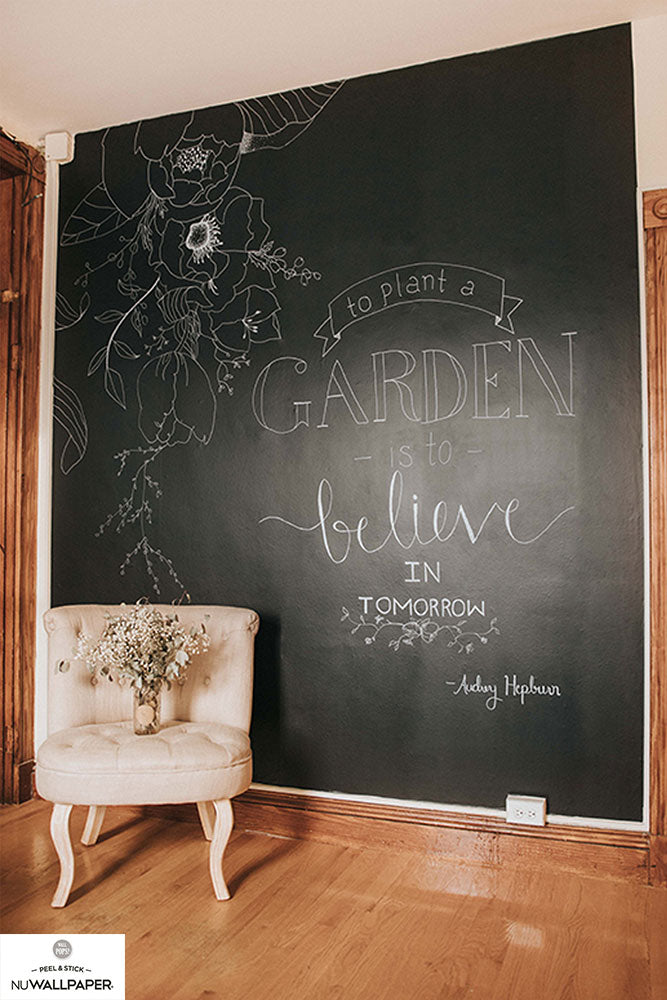 to plant a
GARDEN
- is to -
believe
IN
TOMORROW
- Audrey Hepburn
WALL
POPS!
- PEEL & STICK -
NUWALLPAPER